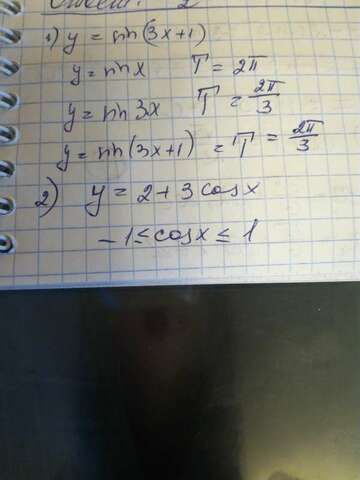 Ответ: 2
1) y = sin(3x+1)
y = sin x T = 2π
y = sin 3x T = 2π/3
y = sin(3x+1) = T = 2π/3
2) y = 2+3 cos x
-1 ≤ cos x ≤ 1